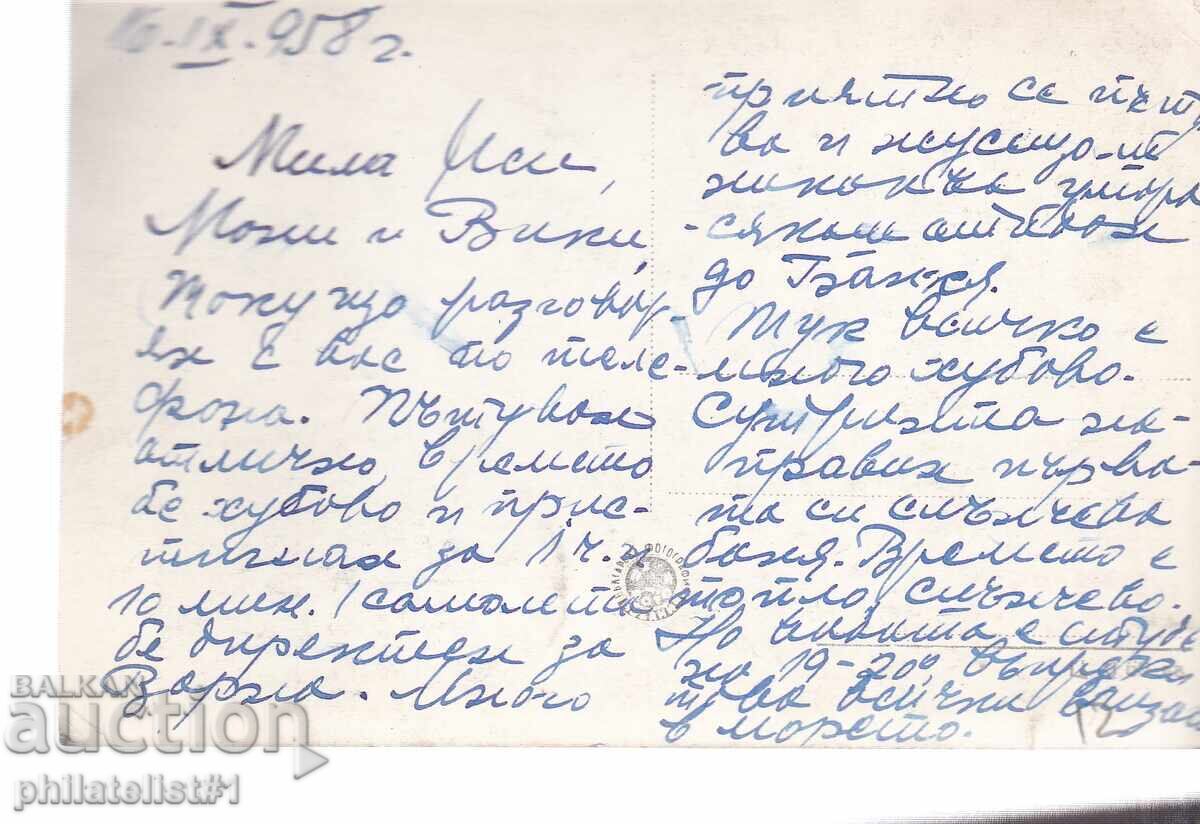 16-IX-958 г.
Мила Иси,
Мони и Вики,
Току що разговар-
ях с вас по теле-
фона. Пътувах
отлично, времето
бе хубаво и прис-
тигнах за 1 ч. и
10 мин. (самолета
бе директен за
Варна. Много
приятно се пъту
ва и
никаква умора
-сякаш отивах
до Банкя.
Тук всичко е
много хубаво.
Сутринта на-
правих първа-
та си слънчева
баня. Времето е
топло, слънчево.
Но водата е студе
на 19-20°, въпреки
това всички влизат
в морето.
БЪЛГАРСКА ФОТОГРАФИЯ
BALKAN
auction
philatelist#1